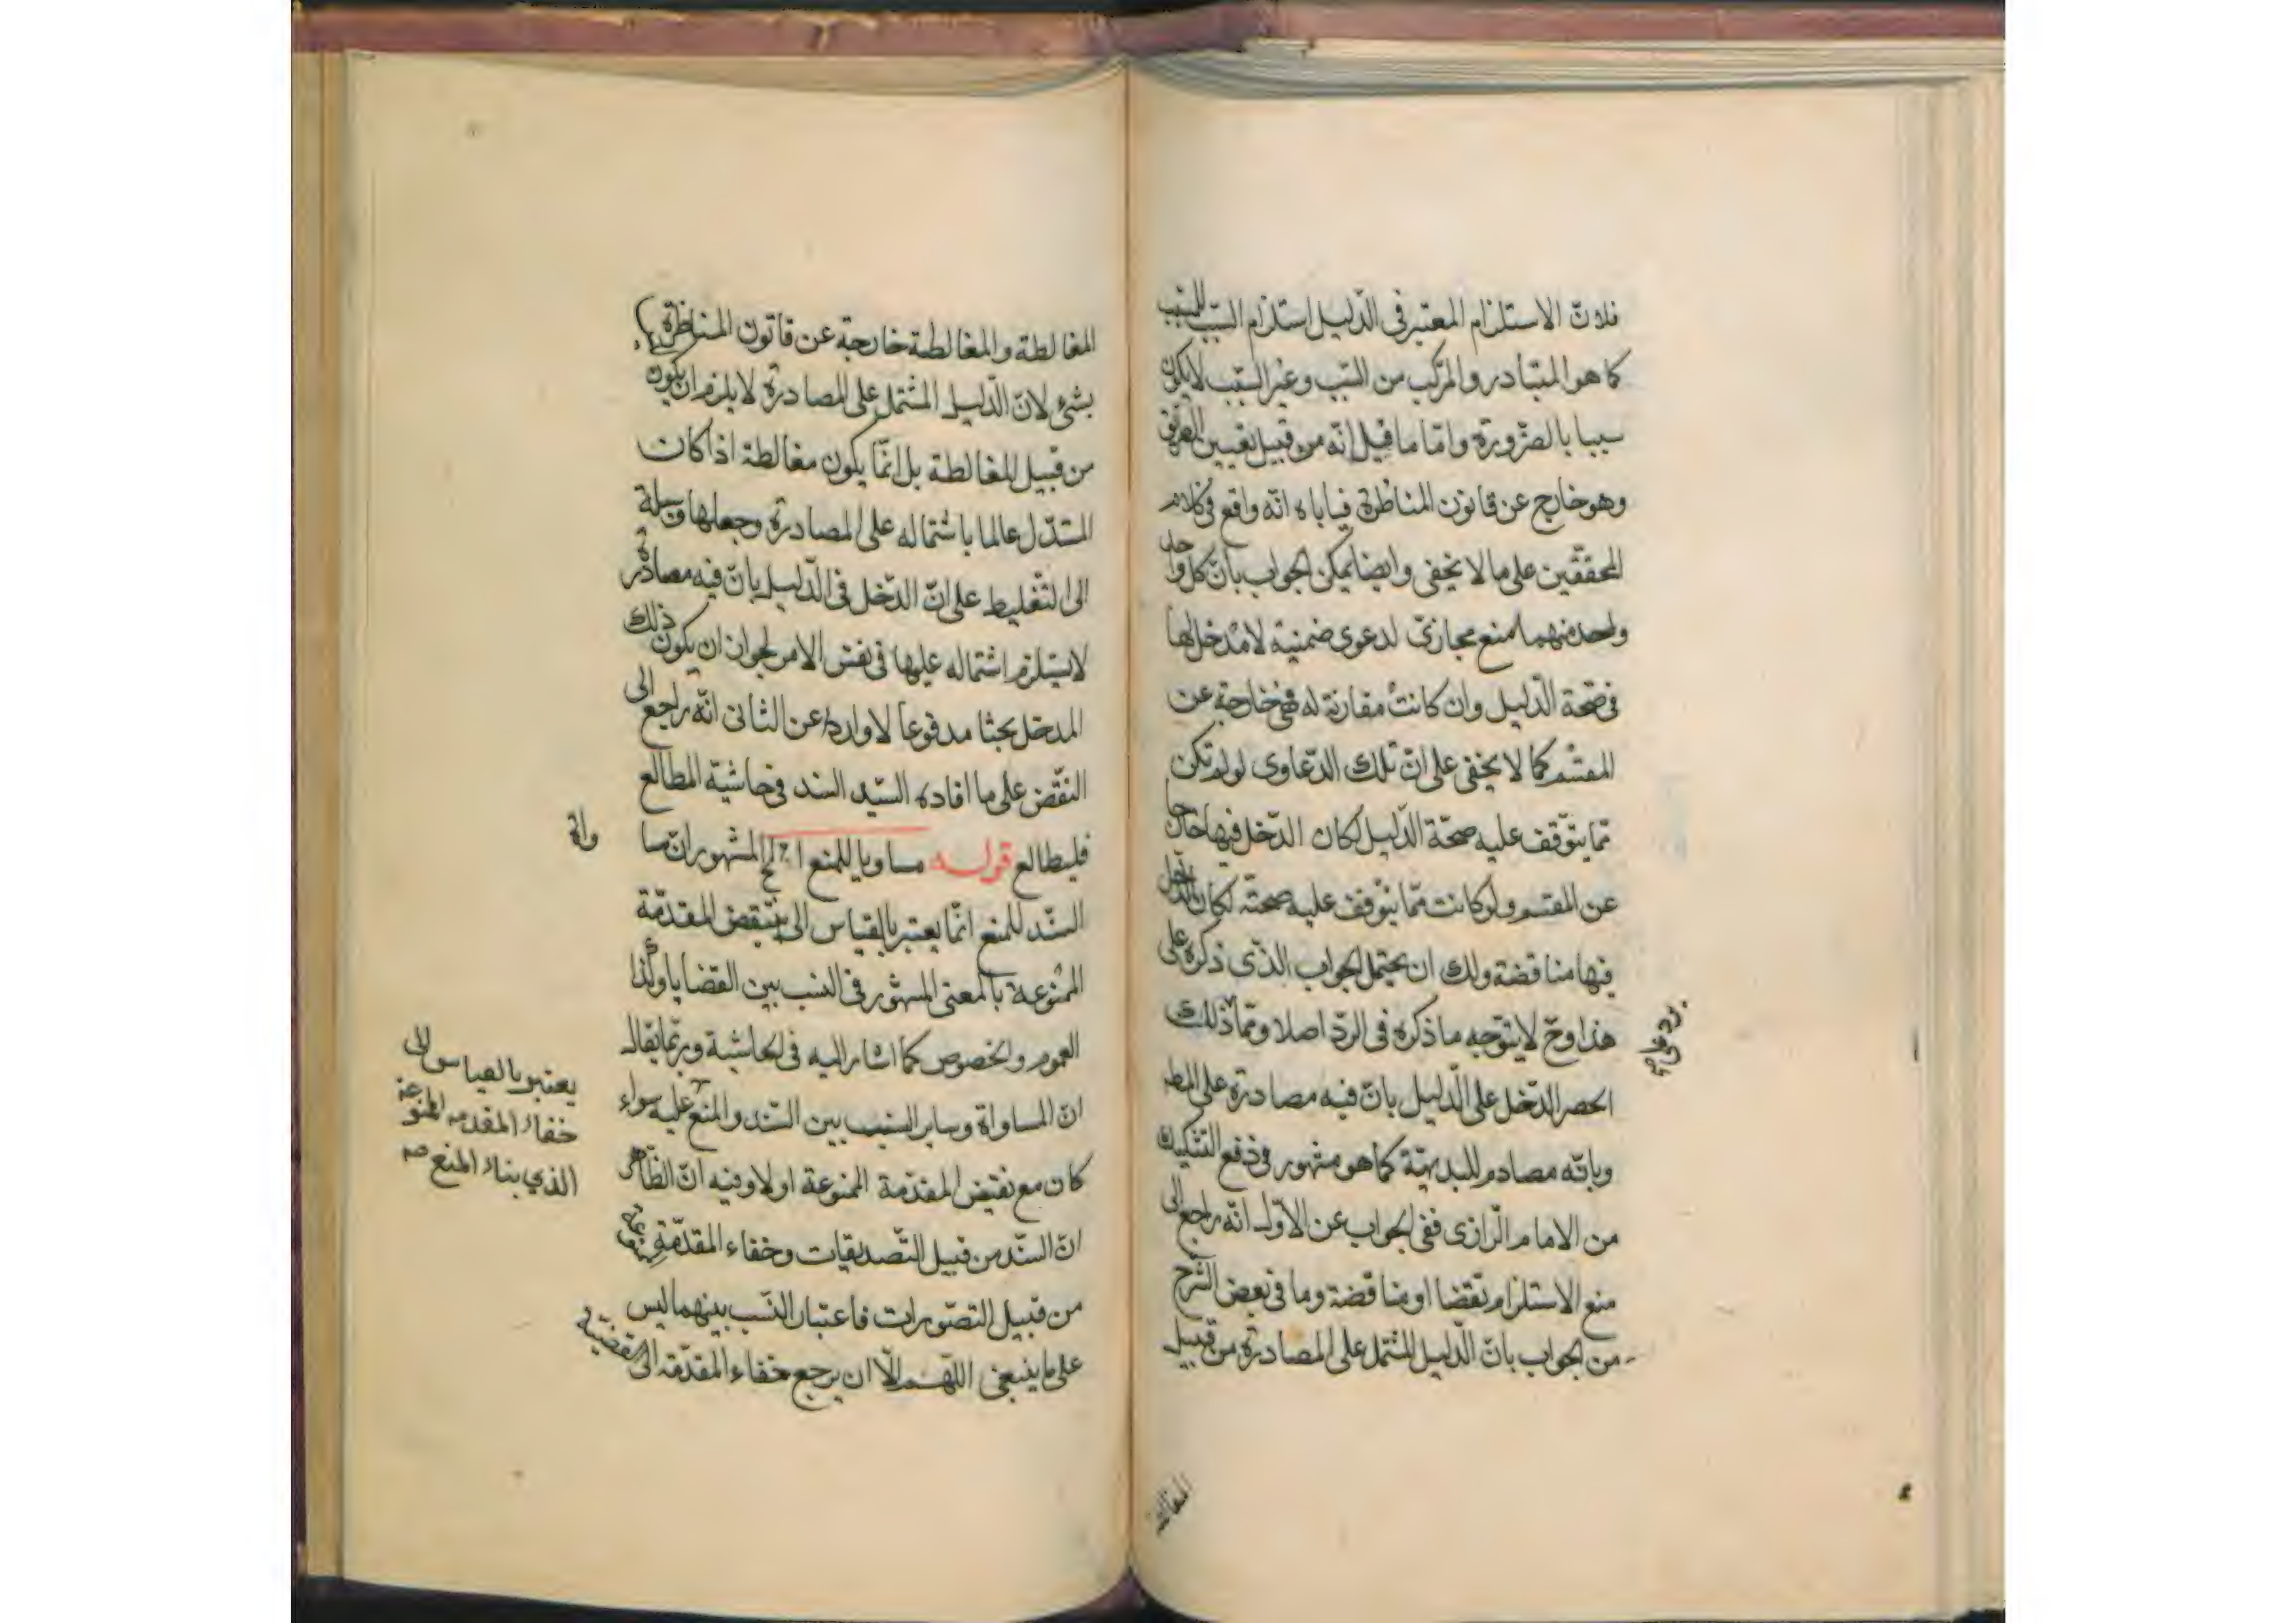 فلان الاستلزام المعتبر فى الدّليل استلزام السّبب للمسبّب
كما هو المتبادر والمركّب من السّبب وغير السّبب لا يكون
سببا بالضّرورة وامّا ما قيل انّه من قبيل تعيين الطّريق
وهو خارج عن قانون المناظرة فياباه انّه واقع فى كلام
المحققّين على ما لا يخفى وايضا يمكن الجواب بانّ كل واحد
واحد منهما منع مجازىّ لدعوى ضمنيّة لا مدخل لها
فى صّحة الدّليل وان كانت مقارنة له فهى خارجة عن
المقسم كما لا يخفى على انّ تلك الدّعاوى لو لم تكن
ممّا يتوّقف عليه صحّة الدّليل لكان الدّخل فيها خارجا
عن المقسم ولو كانت ممّا يتوّقف عليه صحتّه لكان الدّخل
فيها مناقضة ولك ان يحتمل الجواب الذّى ذكره على
هذا وح لا يتوّجه ما ذكره فى الردّ اصلا وممّا ذلك
الحصر الدّخل على الدّليل بانّ فيه مصادرة على المط
وبانّه مصادم للبديهيّة كما هو مشهور فى دفع التشكيك
من الامام الرّازى ففى الجواب عن الاوّل انّه راجع الى
منع الاستلزام نقضا او مناقضة وما فى بعض الشّرح
من الجواب بانّ الدّليل المشتمل على المصادرة من قبيل
المغالطة
المغالطة والمغالطة خارجة عن قانون المناظرة
بشئ لانّ الدّليل المشتمل على المصادرة لا يلزم ان يكون
من قبيل المغالطة بل انّما يكون مغالطة اذا كان
المستدّل عالما باشتماله على المصادرة وجعلها وسيلة
الى التّغليط على انّ الدّخل فى الدّليل بانّ فيه مصادرة
لا يستلزم اشتماله عليها فى نفس الامر لجواز ان يكون ذلك
المدخل بحثا مدفوعا لا واردا عن الثانى انّه راجع الى
النّقض على ما افاده السيّد السند فى حاشية المطالع
فليطالع قوله مساويا للمنع الخ المشهور انّ مسا
واة
السّند للمنع انّما يعتبر بالقياس الى نقيض المقدّمة
الممنوعة بالمعنى المشهور فى النسب بين القضايا وكذا
العموم والخصوص كما اشار اليه فى الحاشية وربّما يقال
انّ المساواة وساير النسب بين السّند والمنع عليه سواء
كان مع نقيض المقدّمة الممنوعة او لا وفيه انّ الظّاهر
انّ السّند من قبيل التّصديقات وخفاء المقدّمة الممنوعة
من قبيل التصّورات فاعتبار النّسب بينهما ليس
على ما ينبغى اللّهم الّا ان يرجع خفاء المقدّمة الى القضيّة
يعتبر بالقياس الى
خفاء المقدمة الممنوعة
الذي بناء المنع صح